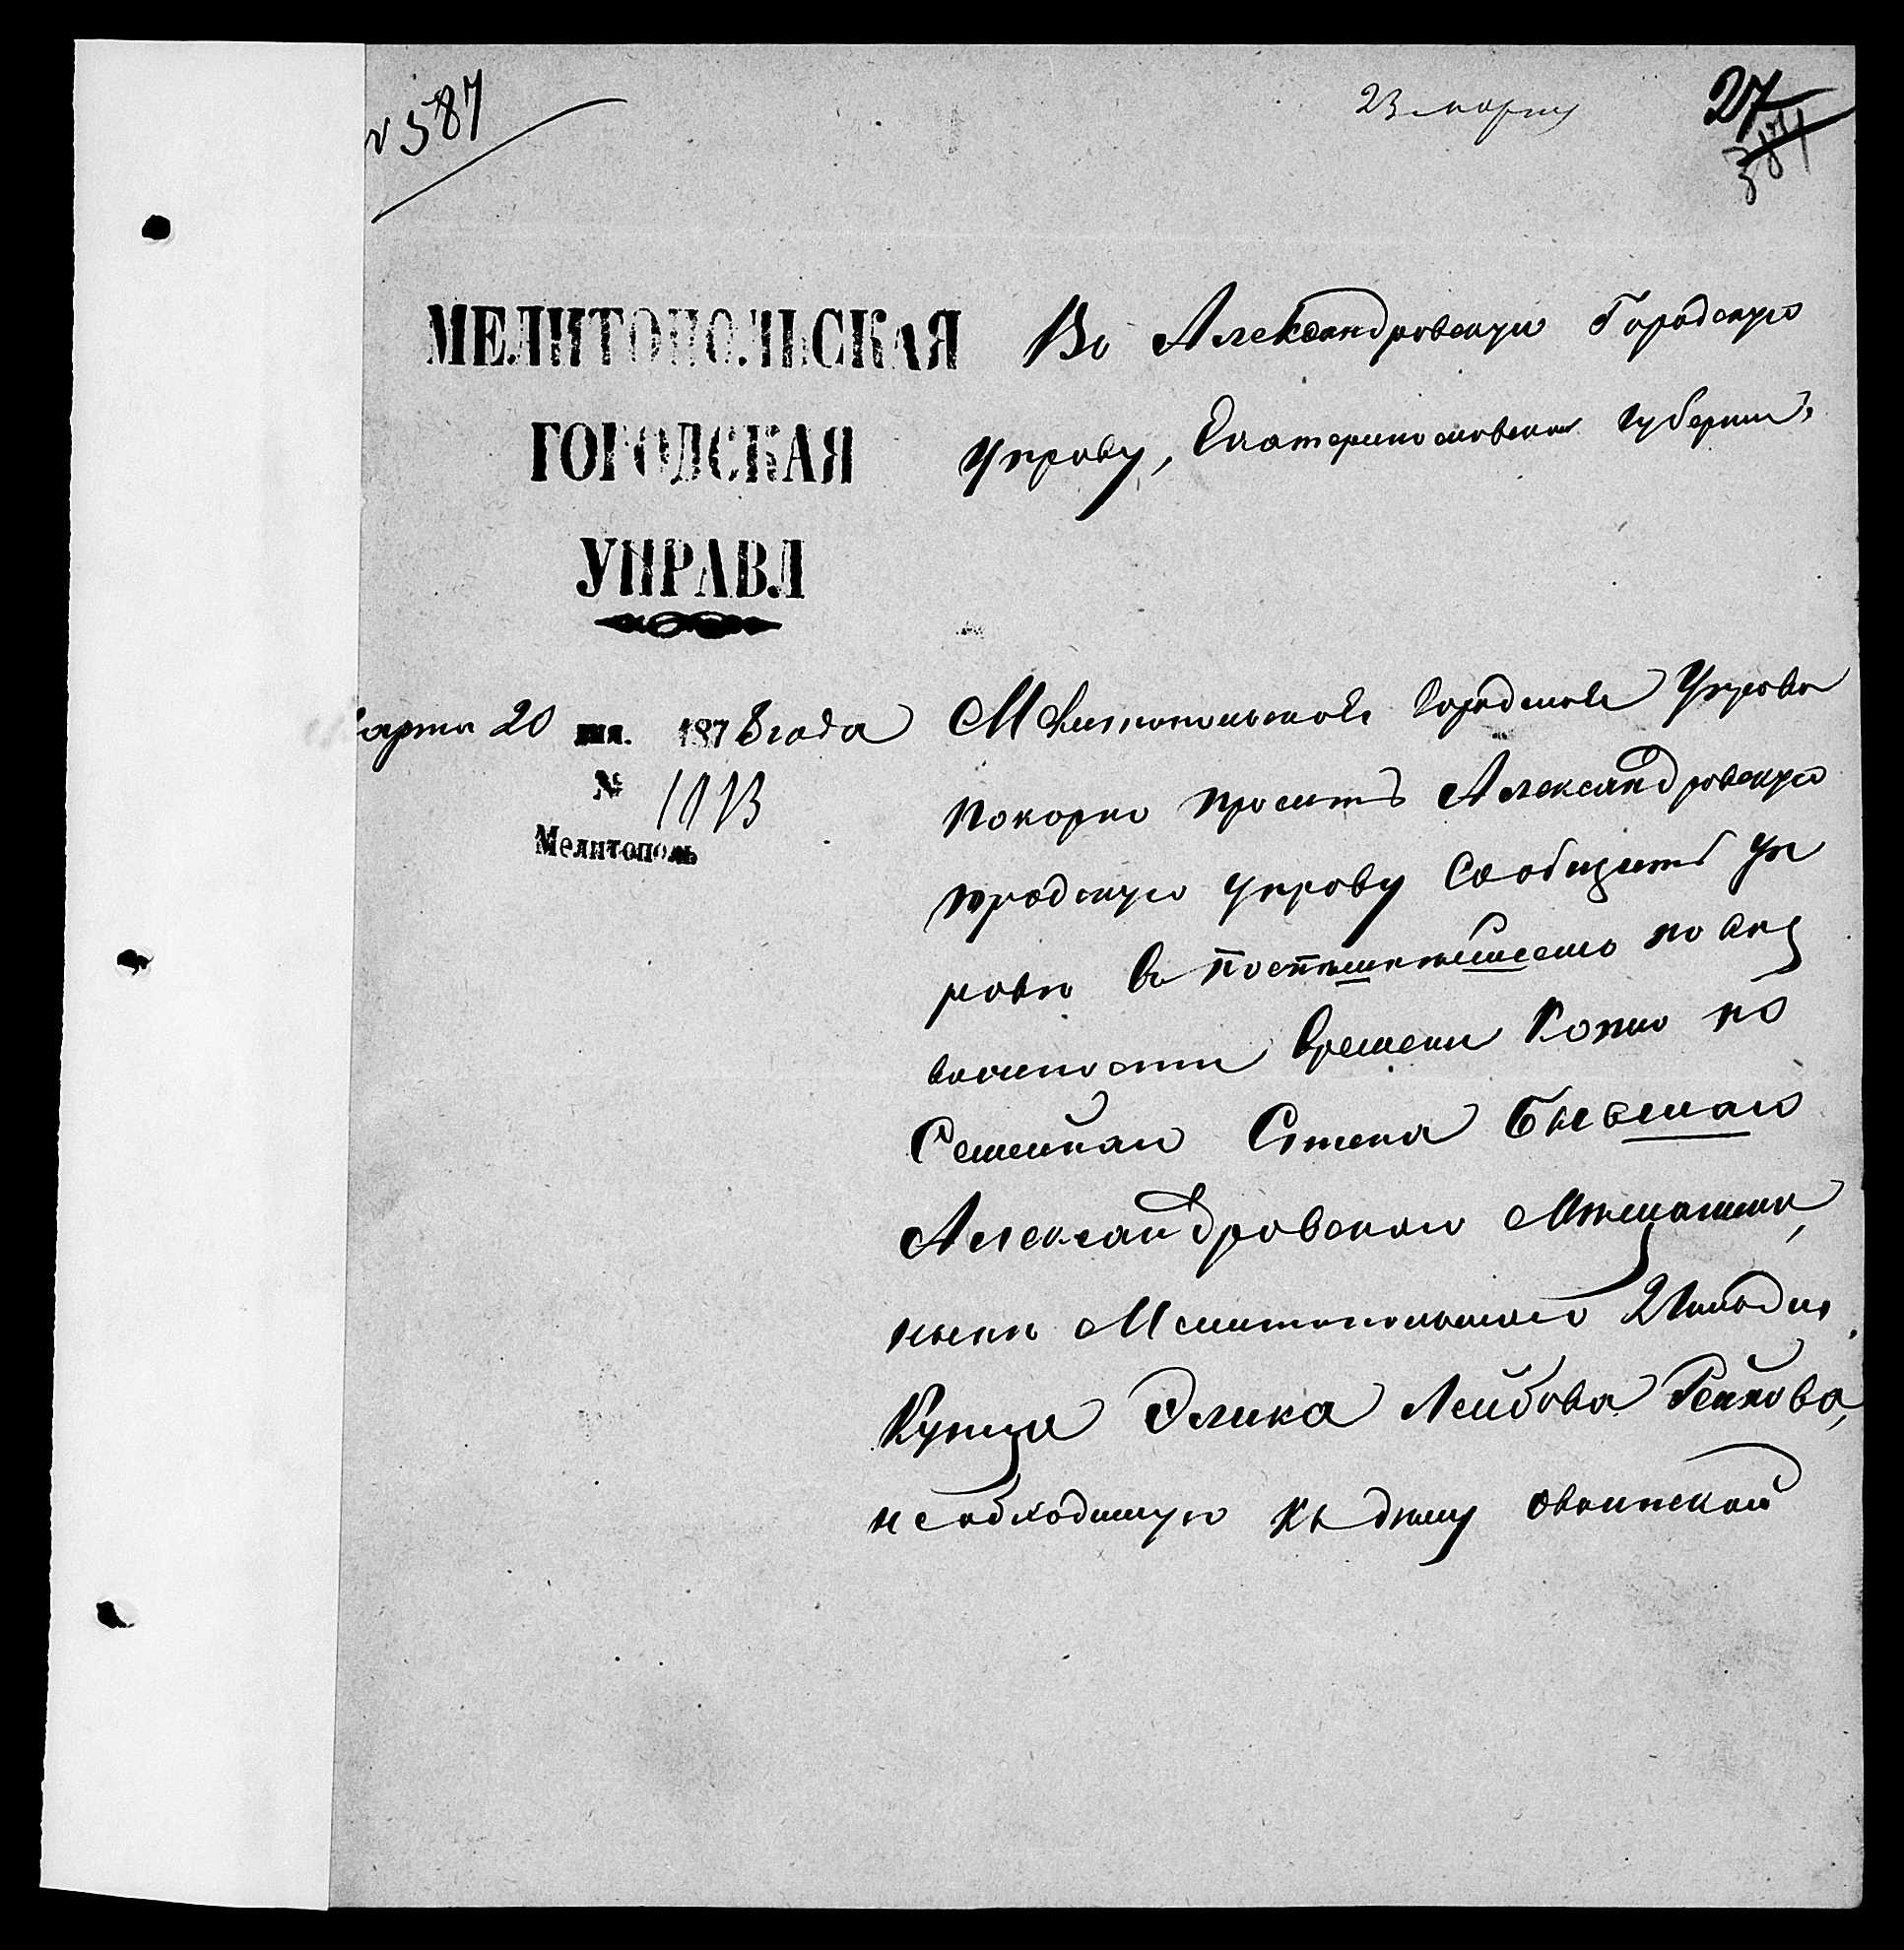 № 587
23 марта
27
МЕЛИТОПОЛЬСКАЯ
ГОРОДСКАЯ
УПРАВА
арта 20 дня. 1878 года
№ 1013
Мелитополь
Во Александровскую Городскую
Управу, Екатеринославской Губерніи.
Мелитопольская Городская Управа
покорно проситъ Александровскую
городскую управу сообщить уп
равѣ въ поспѣшнѣйшемъ по
времени Копію по
Семейнаго Списка бывшаго
Александровскаго Мѣщанина,
нынѣ Мелитопольскаго 2 Гильдіи
Купца Элика Лейбова
необходимую къ дѣлу о воинской